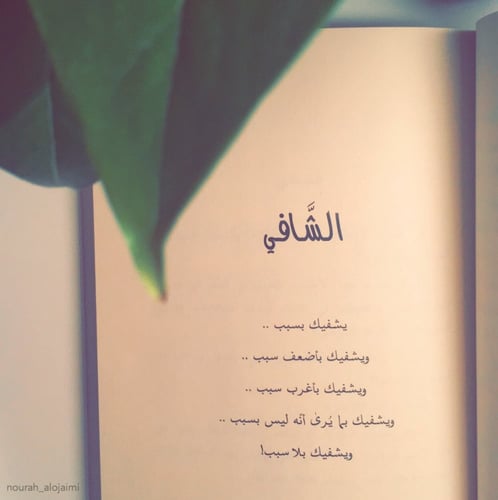 الشَّافي
يشفيك بسبب ..
ويشفيك بأضعف سبب ..
ويشفيك بأغرب سبب ..
ويشفيك بما يُرىٰ أنّه ليس بسبب ..
ويشفيك بلا سبب!
nourah_alojaimi